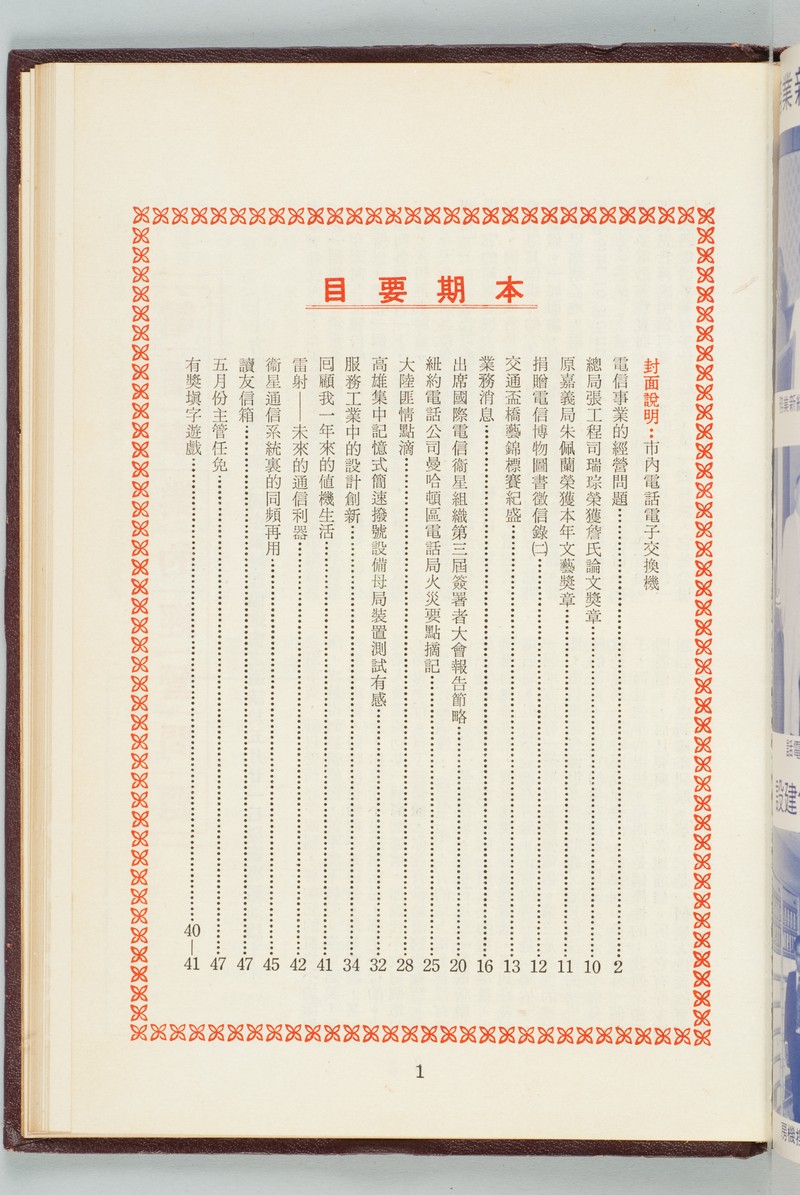 本期要目
封面說明：市內電話電子交換機
電信事業的經營問題 2
總局張工程司瑞琮榮獲詹氏論文獎章 10
原嘉義局朱佩蘭榮獲本年文藝獎章 11
捐贈電信博物圖書徵信錄㈡ 12
交通盃橋藝錦標賽紀盛 13
業務消息 16
出席國際電信衞星組織第三屆簽署者大會報告節略 20
紐約電話公司曼哈頓區電話局火災要點摘記 25
大陸匪情點滴 28
高雄集中記憶式簡速撥號設備母局裝置測試有感 32
服務工業中的設計創新 34
回顧我一年來的値機生活 41
雷射——未來的通信利器 42
衞星通信系統裏的同頻再用 45
讀友信箱 47
五月份主管任免 47
有獎塡字遊戲 40—41
1